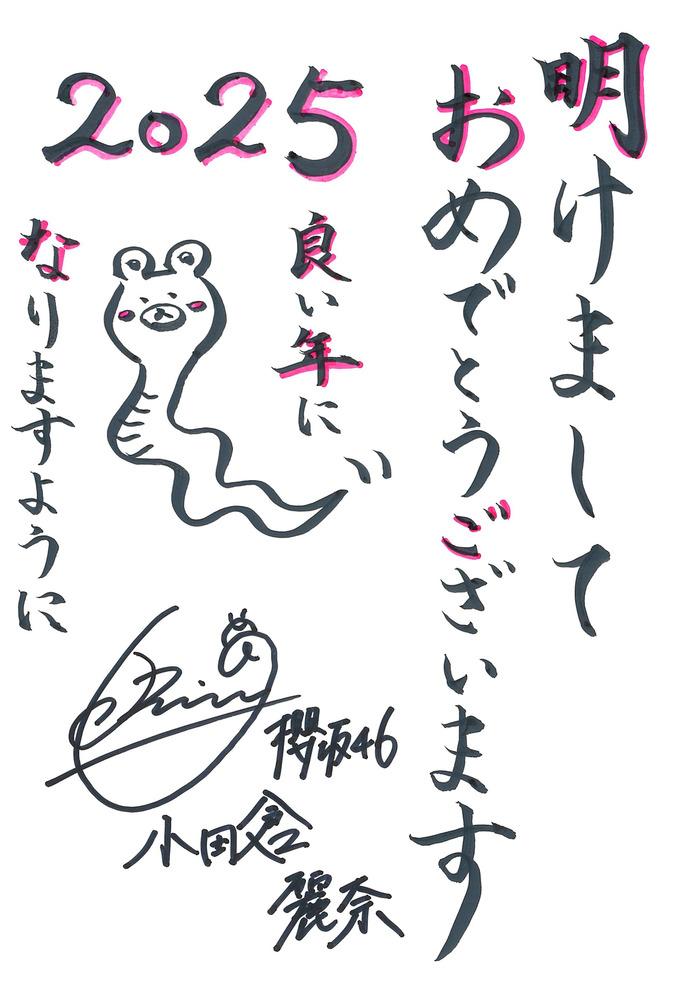 明けまして
おめでとうございます
2025
良い年に
なりますように
櫻坂46
小田倉
麗奈